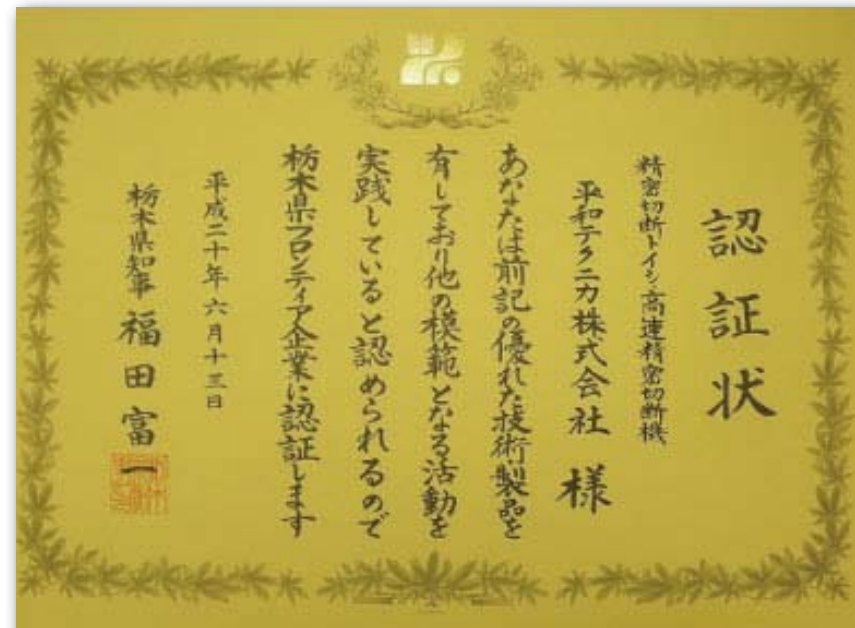 認証状
精密切断トイシ・高速精密切断機
平和テクニカ株式会社 様
あなたは前記の優れた技術・製品を
有しており他の模範となる活動を
実践していると認められるので
栃木県フロンティア企業に認証します
平成二十年六月十三日
栃木県知事 福田富一